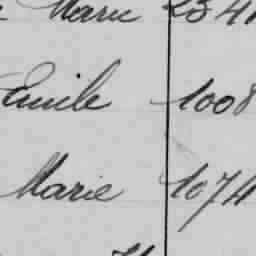 Marie 2341
Emile 1008
Marie 1074